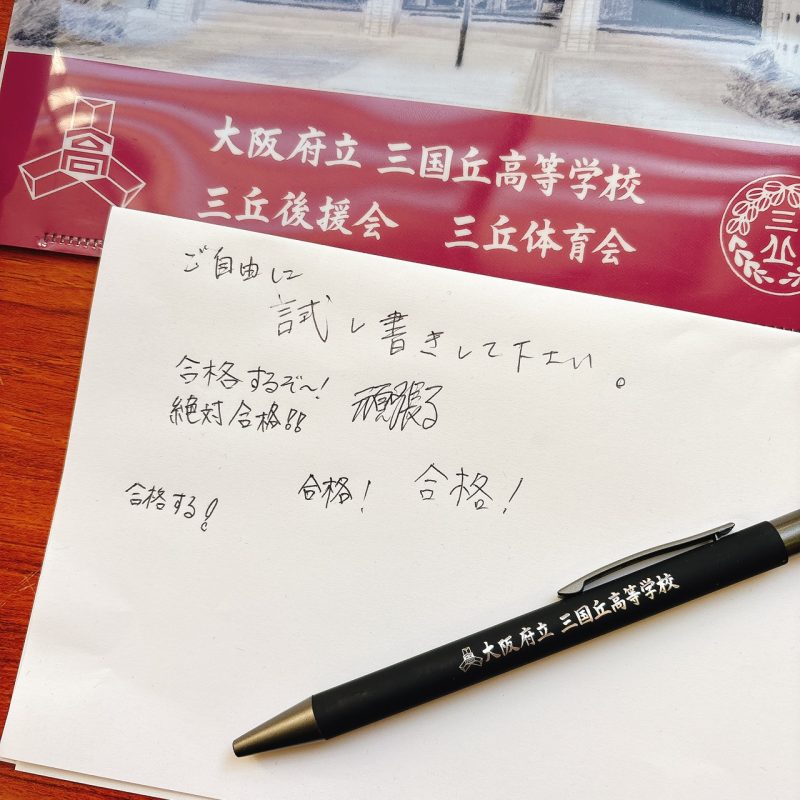 大阪府立 三国丘高等学校
三丘後援会 三丘体育会
三丘
高
ご自由に
試し書きして下さい。
合格するぞ〜!
絶対合格!!
頑張る
合格する!
合格!
合格!
大阪府立 三国丘高等学校